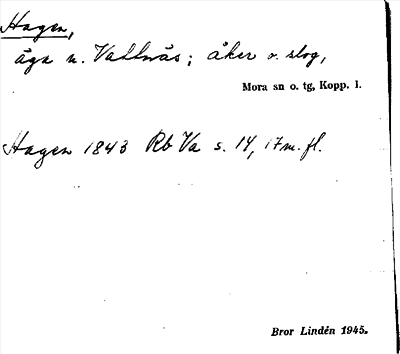 Hagen,
äga n. Vattnäs; åker o. slog,
Mora sn o. tg, Kopp. l.
Hagen 1843 Rb Va s. 14, 17 m. fl.
Bror Lindén 1945.